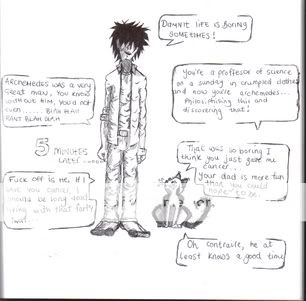 DAMNIT LIFE IS BORING
SOMETIMES!
You're a proffesor of science
on a Sunday in crumpled clothes
and now you're archemedes...
Philosiphising this and
discovering that!
ARCHEMEDES WAS A VERY
GREAT MAN, YOU KNOW
WITHOUT HIM, YOU'D NOT
EVEN ....... BLAH BLAH
RANT BLAH BLAH
5 MINUTES
LATER
That was so boring I
think you just gave me
cancer...
Your dad is more fun
than you could
hope to be.
Fuck off is he. If I
gave you cancer, I
should be long dead
living with that farty
Oh, contraire, he at
least knows a good time